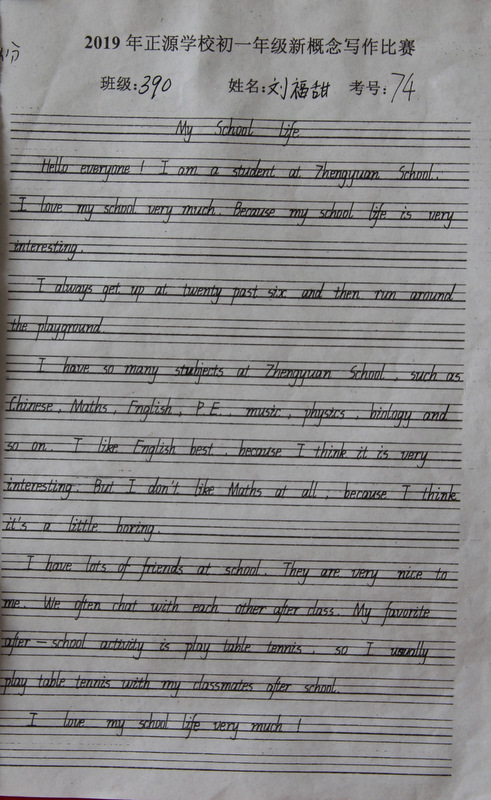 2019年正源学校初一年级新概念写作比赛
班级:390 姓名:刘福甜 考号:74
My School life
Hello everyone! I am a student at Zhengyuan School.
I love my school very much. Because my school life is very
interesting.
I always get up at twenty past six and then run around
the playground.
I have so many subjects at Zhengyuan School, such as
Chinese, Maths, English, P.E. music, physics, biology and
so on. I like English best, because I think it is very
interesting. But I don't like Maths at all, because I think
it's a little boring.
I have lots of friends at school. They are very nice to
me. We often chat with each other after class. My favorite
after-school activity is play table tennis, so I usually
play table tennis with my classmates after school.
I love my school life very much!